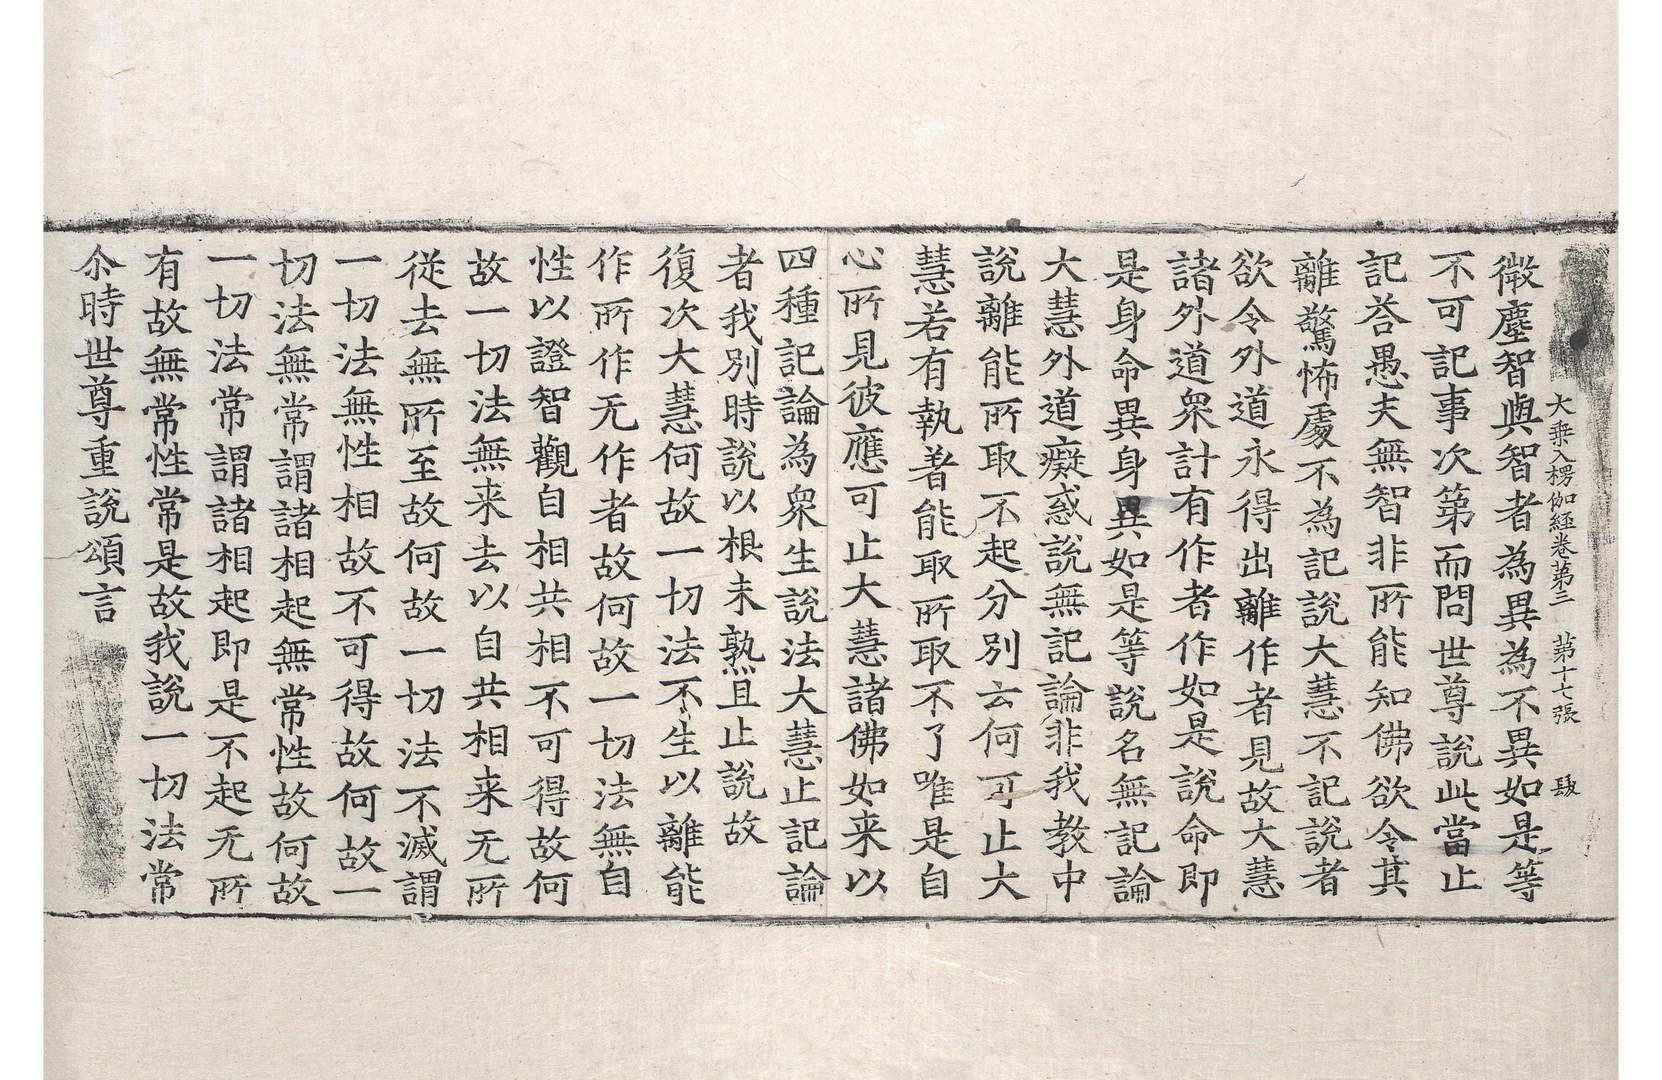 大乗入楞伽経卷第三 第十七張 㲋
微塵智與智者為異為不異如是等
不可記事次第而問世尊說此當止
記荅愚夫無智非所能知佛欲令其
離驚怖處不為記說大慧不記說者
欲令外道永得出離作者見故大慧
諸外道衆計有作者作如是說命即
是身命異身異如是等說名無記論
大慧外道癡惑說無記論非我教中
說離能所取不起分別云何可止大
慧若有執著能取所取不了唯是自
心所見彼應可止大慧諸佛如来以
四種記論為衆生說法大慧止記論
者我別時說以根未熟且止說故
復次大慧何故一切法不生以離能
作所作无作者故何故一切法無自
性以證智觀自相共相不可得故何
故一切法無来去以自共相来无所
従去無所至故何故一切法不滅謂
一切法無性相故不可得故何故一
切法無常謂諸相起無常性故何故
一切法常謂諸相起即是不起无所
有故無常性常是故我說一切法常
尒時世尊重說頌言